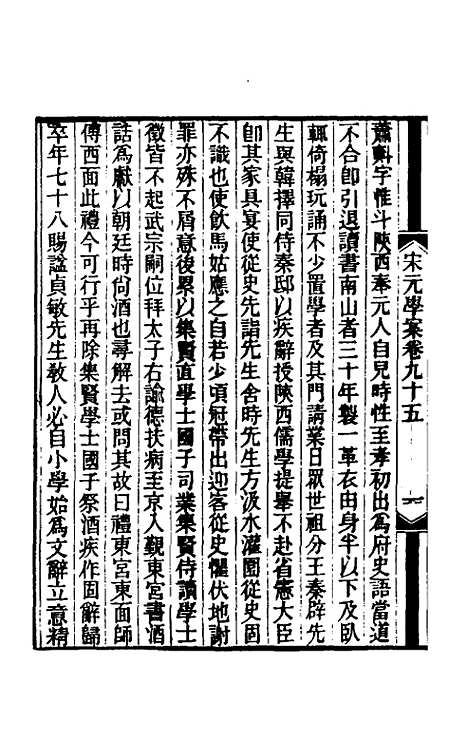 宋元學案卷九十五
蕭𣂏字惟斗陝西奉元人自兒時性至孝初出爲府史語當道
不合卽引退讀書南山者三十年製一革衣由身半以下及臥
輒倚榻玩誦不少置學者及其門請業日眾世祖分王秦辟先
生與韓擇同侍秦邸以疾辭授陝西儒學提舉不赴省憲大臣
卽其家具宴使從史先詣先生舍時先生方汲水灌園從史固
不識也使飲馬姑應之自若少頃冠帶出迎客從史懼伏地謝
罪亦殊不屑意後累以集賢直學士國子司業集賢侍讀學士
徵皆不起武宗嗣位拜太子右諭德扶病至京入覲東宮書酒
誥爲獻以朝廷時尙酒也尋解去或問其故曰禮東宮東面師
傅西面此禮今可行乎再除集賢學士國子祭酒疾作固辭歸
卒年七十八賜諡貞敏先生敎人必自小學始爲文辭立意精